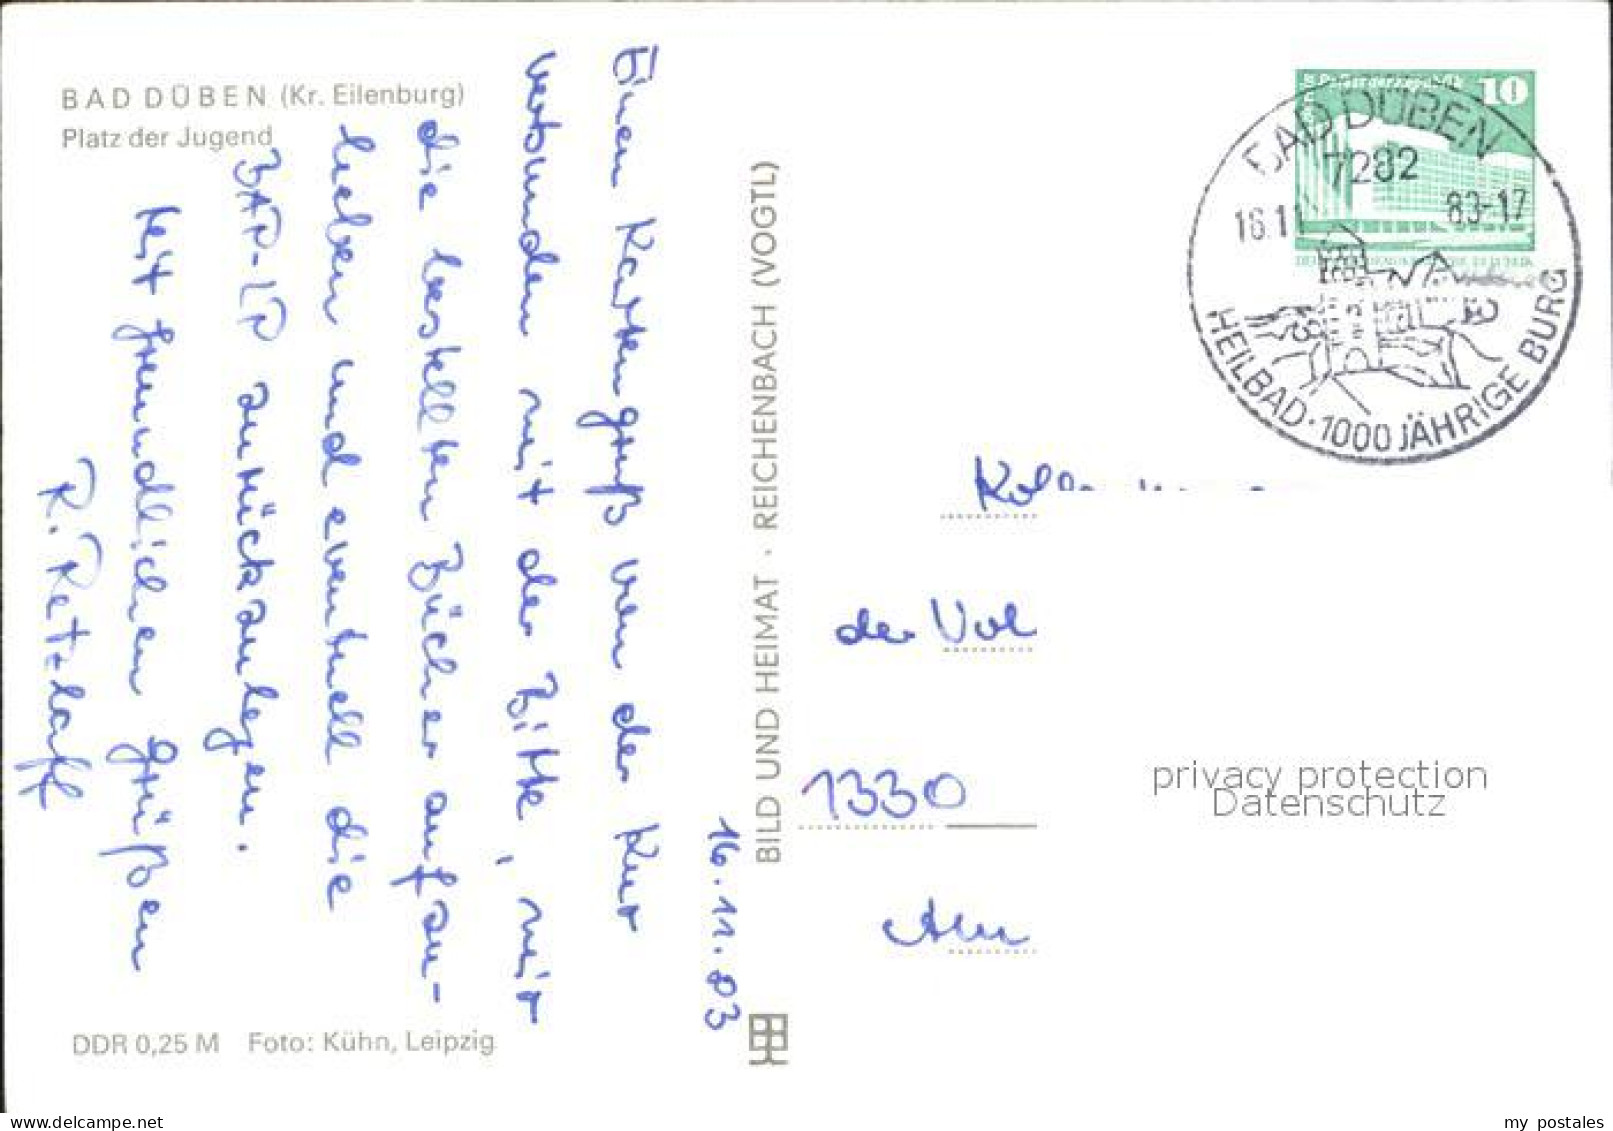 BAD DÜBEN (Kr. Eilenburg)
Platz der Jugend
16.11.83
Einen Kartengruß von der Kur
verbunden mit der Bitte, mir
die bestellten Bücher aufzu-
heben und eventuell die
zurückzulegen.
Mit freundlichen Grüßen
R. Retzlaff
DDR 0,25 M Foto: Kühn, Leipzig
BILD UND HEIMAT · REICHENBACH (VOGTL)
10
BAD DÜBEN
7282
83-17
HEILBAD · 1000 JÄHRIGE BURG
der Vol
1330
privacy protection
Datenschutz
www.delcampe.net
my_postales